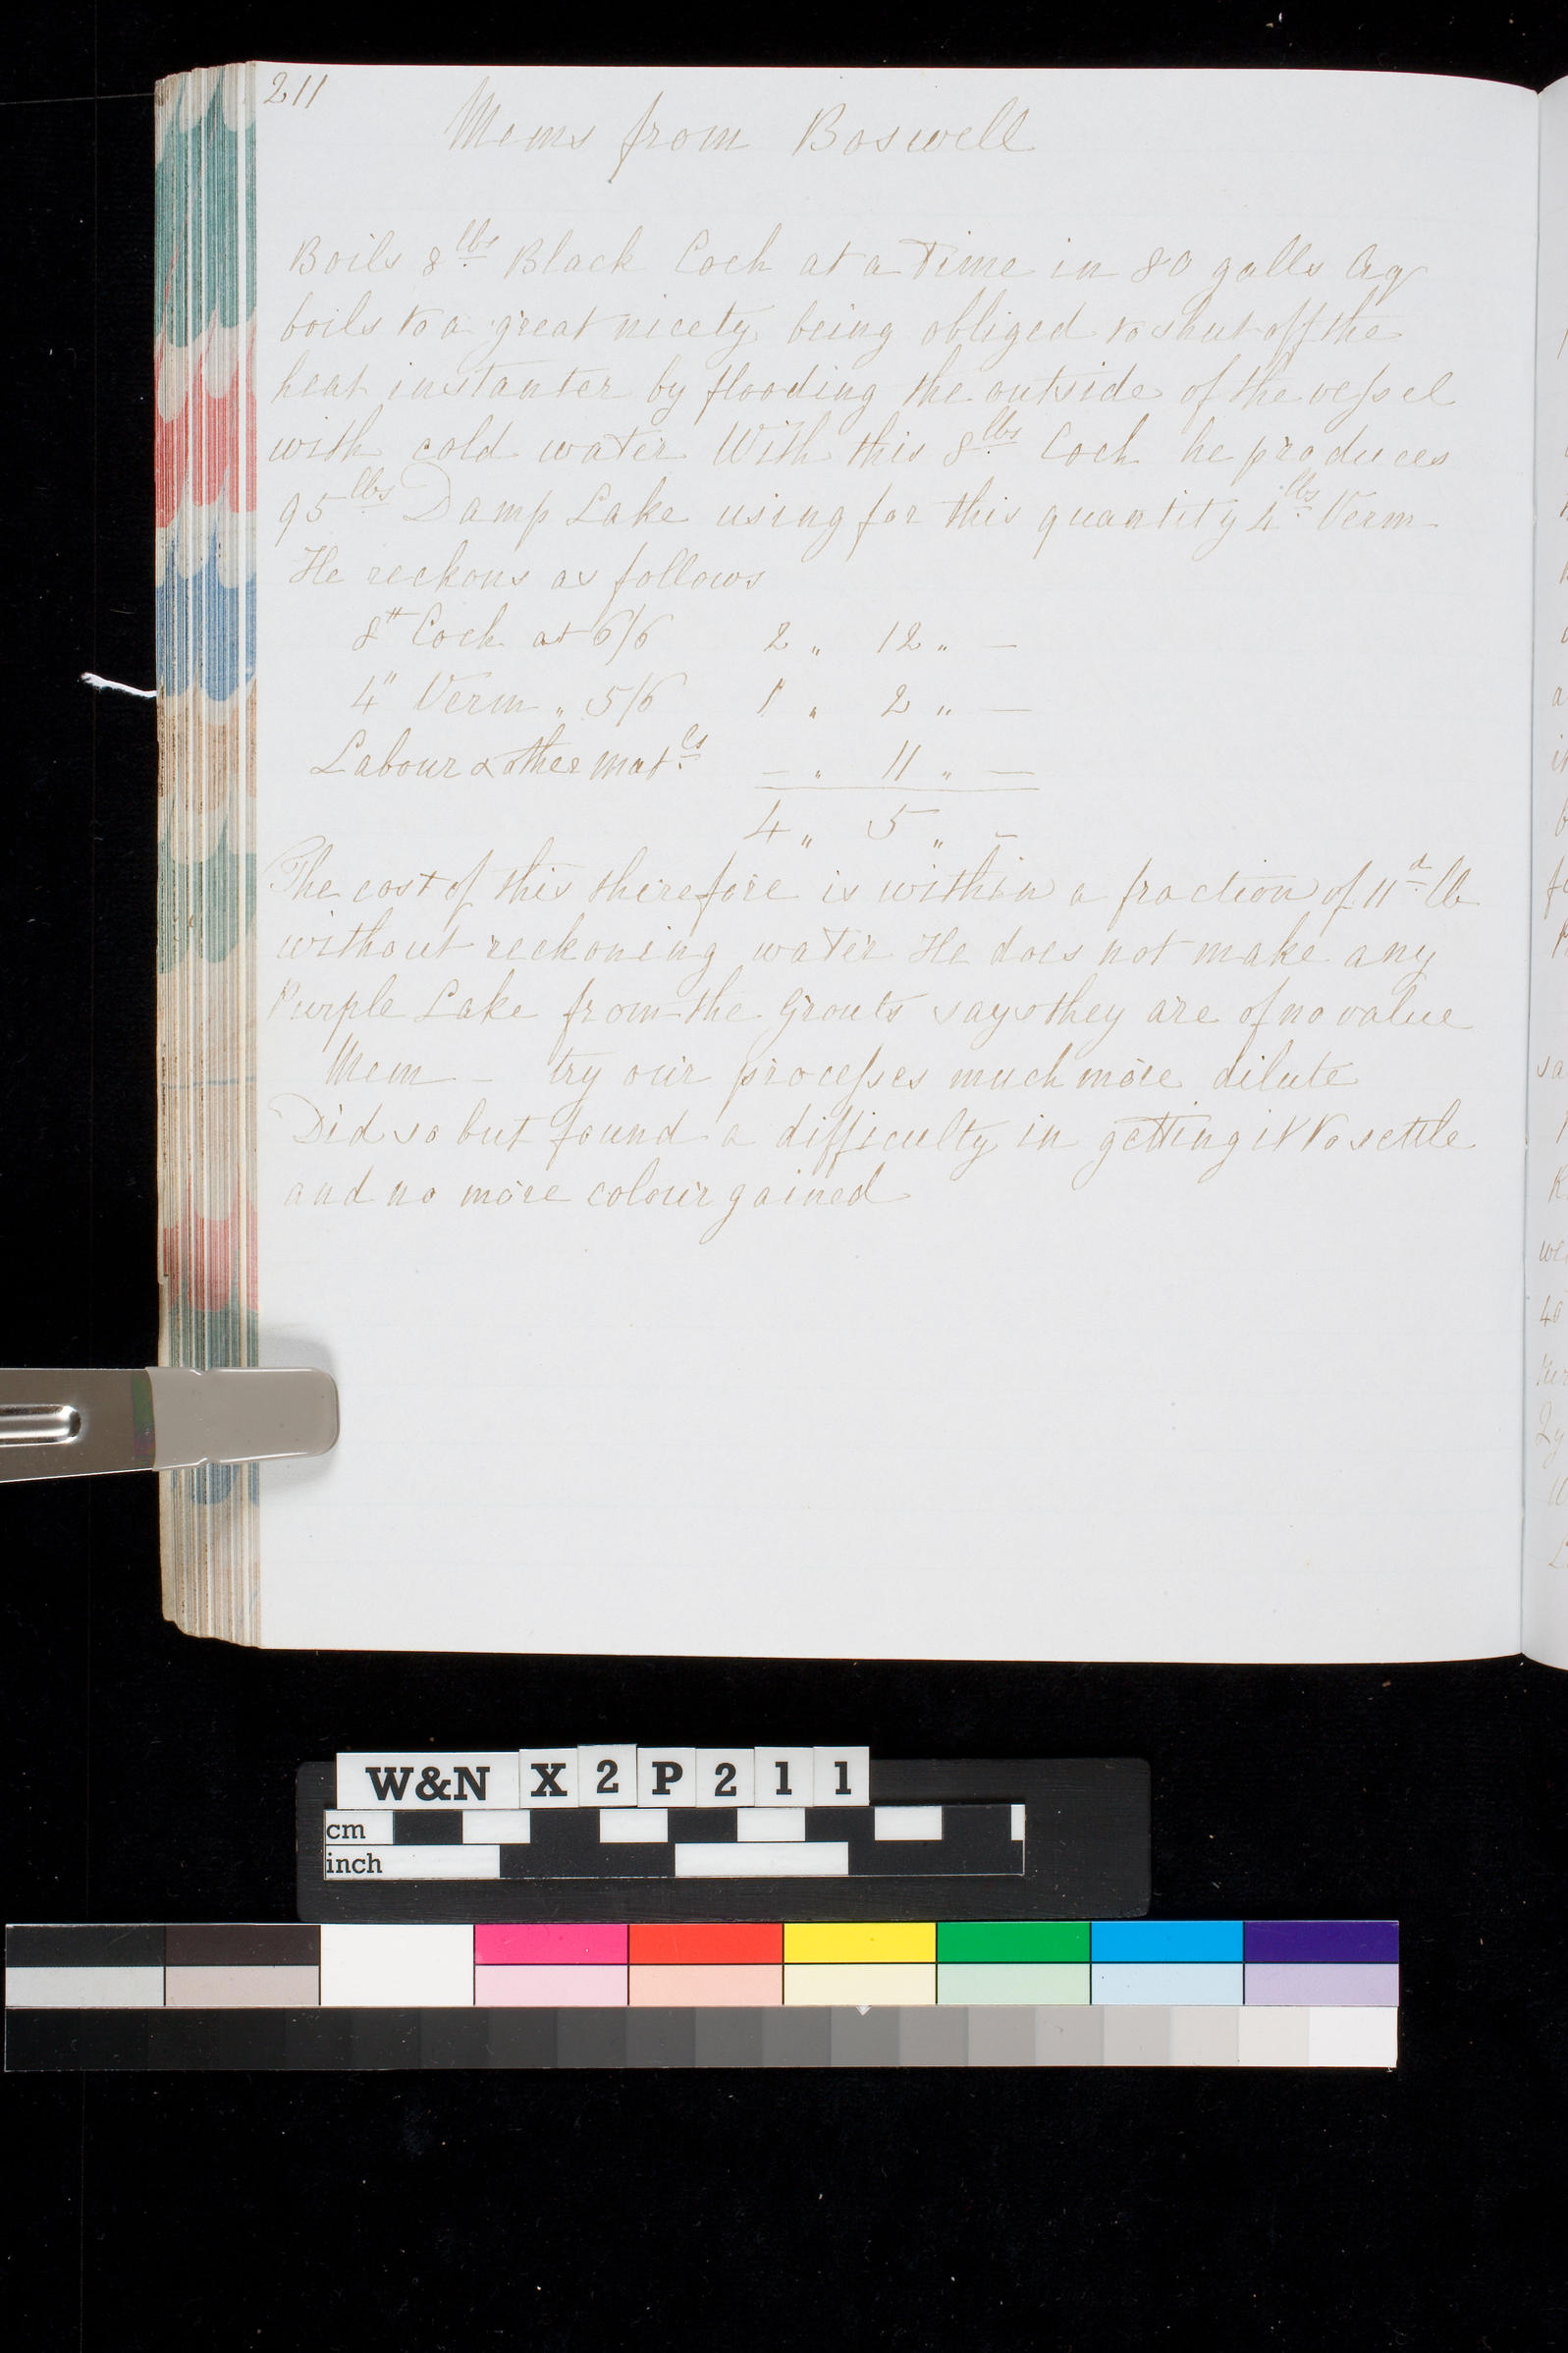 211
Mems from Boswell
Boils 8 lbs Black Coch at a Time in 80 galls Aq
boils to a great nicety, being obliged to shut off the
heat instanter by flooding the outside of the vessel
with cold water With this 8 lbs Coch he produces
95 lbs Damp Lake using for this quantity 4 lbs Verm
He reckons as follows
8# Coch at 6/6 2 „ 12 „ —
4" Verm „ 5/6 1 „ 2 „ —
Labour & other matls — „ 11 „ —
4 „ 5 „ –
The cost of this therefore is within a fraction of 11d lb
without reckoning water He does not make any
Purple Lake from the Grouts says they are of no value
Mem – try our processes much more dilute
Did so but found a difficulty in getting it to settle
and no more colour gained
W&N X2P211
cm
inch